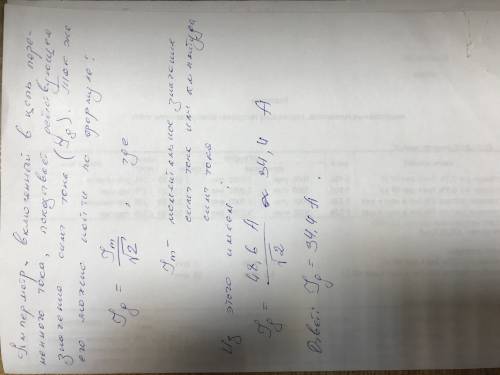 Амперметр, включенный в цепь пере-
менного тока, показывает действующее
значение силы тока (Iд). Так же
его можно найти по формуле:
Iд = Im/√2 , где
Im – максимальное значение
силы тока или амплитуда
силы тока
Из этого имеем:
Iд = 48,6 А/√2 ≈ 34,4 А
Ответ: Iд = 34,4 А.